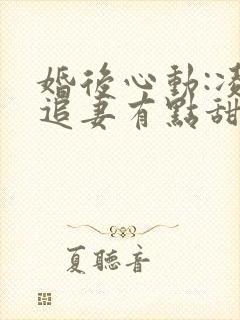 婚後心動:凌
追妻有點甜
夏聽音